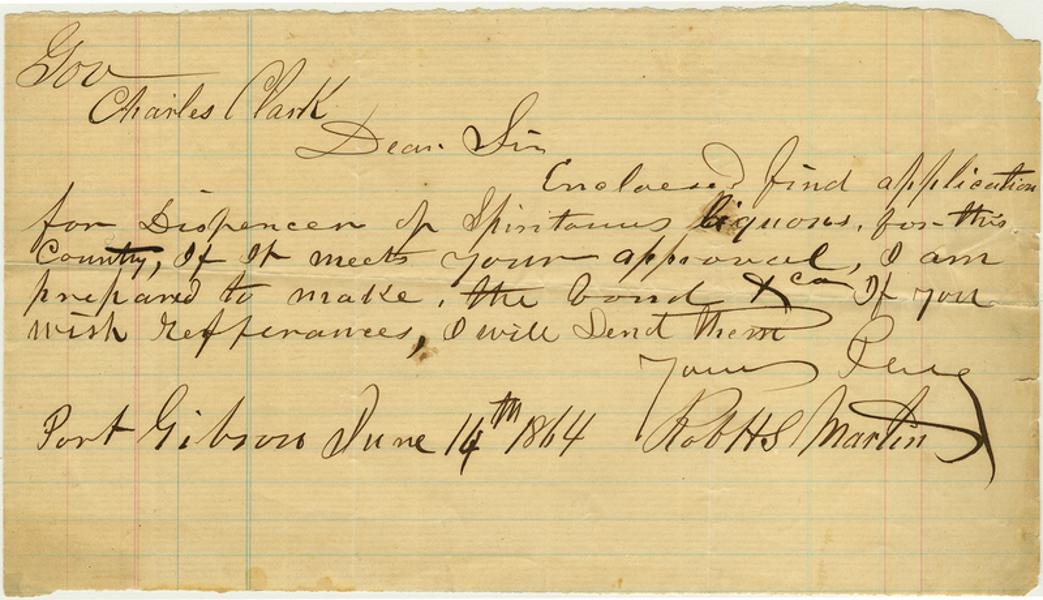 Gov
Charles Clark
Dear Sir
Enclosed find application
for Dispencer of Spiritous liquors, for this
County, If It meets your approval, I am
prepared to make, the bond &ca If you
wish Refferances, I will Send them
Yours
Port Gibson June 14th 1864 Rob H S Martin